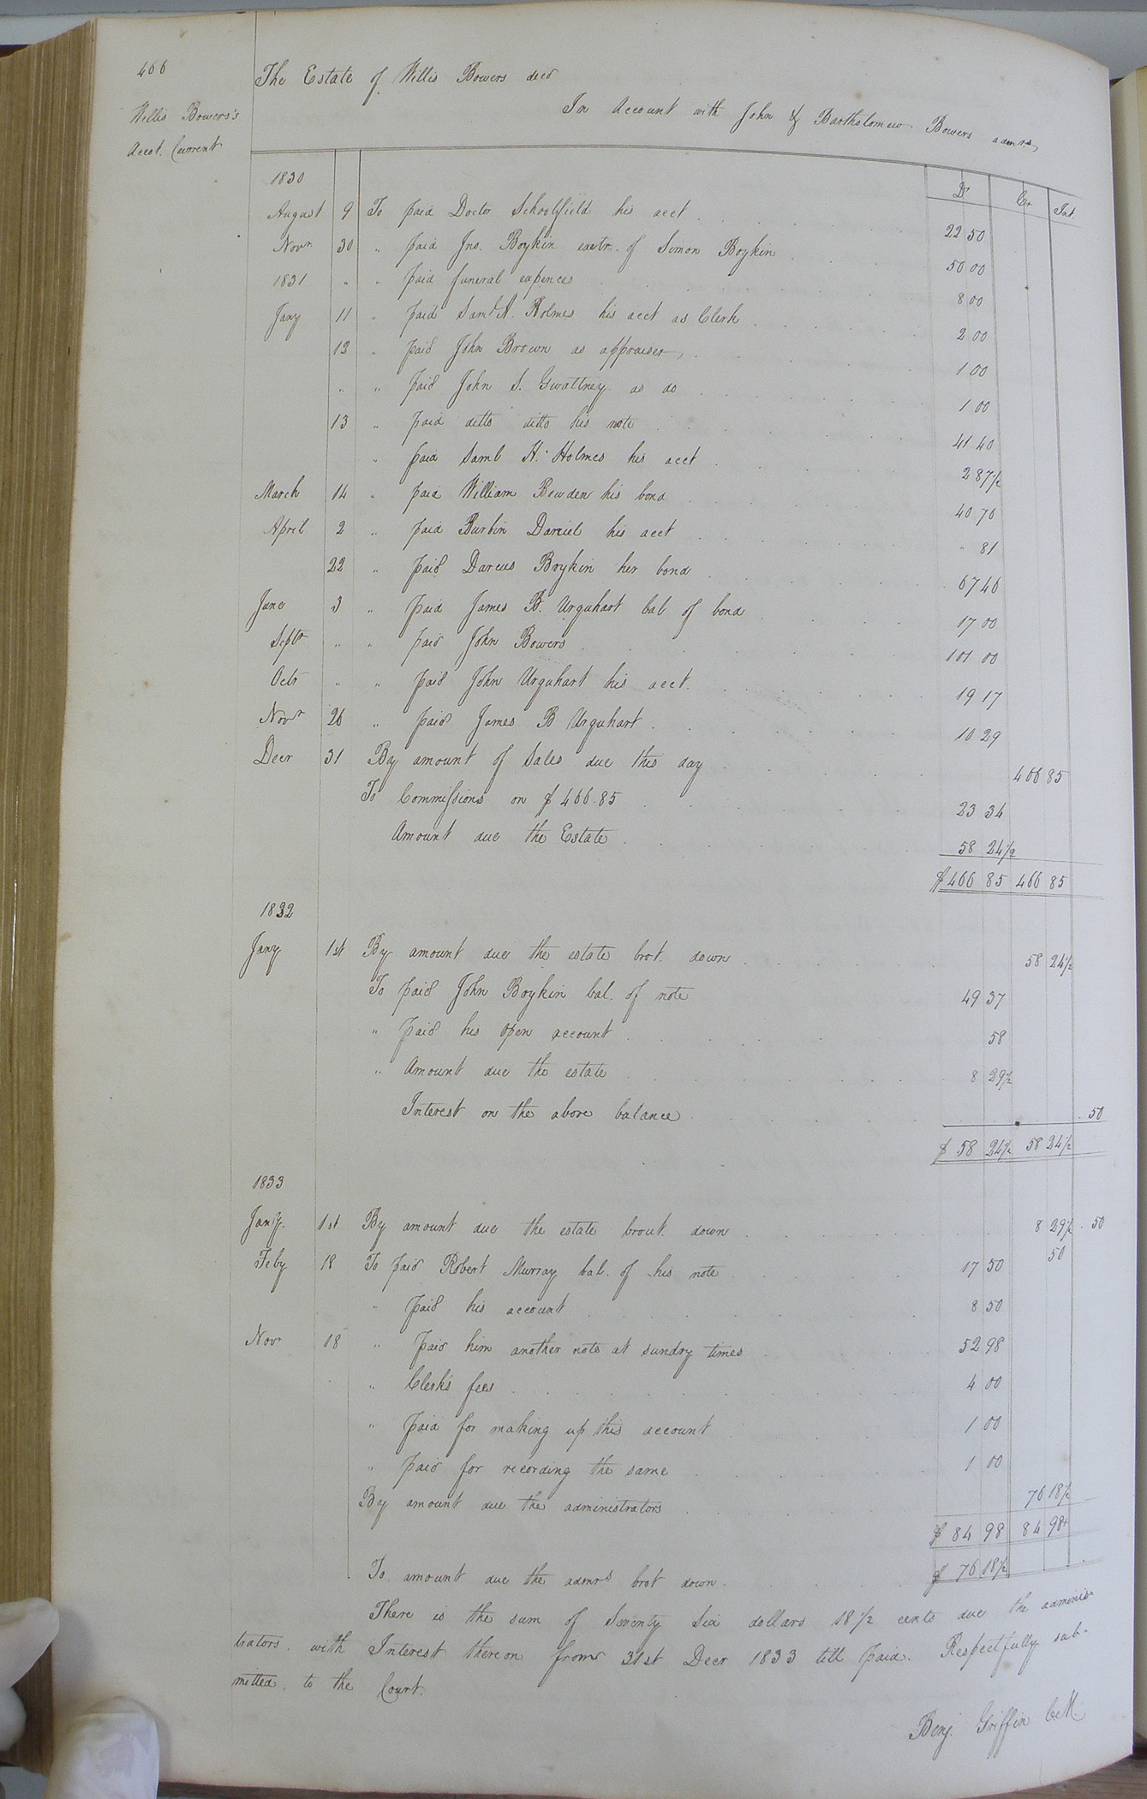 466
Willis Bowers's
Acct. Current
The Estate of Willis Bowers decd
In Account with John & Bartholomew Bowers admrs,
Dr Cr Int
1830
August 9 To paid Doctor Schoolfield his acct 22 50
Novr 30 " paid Jno. Boykin exetr. of Simon Boykin 50 00
1831 " " paid funeral expences 8 00
Jany 11 " paid Saml H. Holmes his acct as Clerk 2 00
13 " paid John Brown as appraiser, 1 00
" " paid John S. Gwaltney as do 1 00
13 " paid ditto ditto his note 41 40
" paid Saml H. Holmes his acct 2 87½
March 14 " paid William Bowden his bond 40 70
April 2 " paid Burbin Daniel his acct " 81
22 " paid Darcus Boykin her bond 67 46
June 3 " paid James B. Urquhart bal of bond 17 00
Septr " " paid John Bowers 101 00
Octr " " paid John Urquhart his acct. 19 17
Novr 26 " paid James B Urquhart 10 29
Decr 31 By amount of Sales due this day 466 85
To Commissions on $466.85 23 34
Amount due the Estate 58 24½
$466 85 466 85
1832
Jany 1st By amount due the estate brot. down 58 24½
To paid John Boykin bal. of note 49 37
" paid his open account 58
" Amount due the estate 8 29½
Interest on the above balance .50
$ 58 24½ 58 24½
1833
Jany. 1st By amount due the estate brout. down 8 29½ .50
50
Feby 18 To paid Robert Murray bal. of his note 17 50
" paid his account 8 50
Novr 18 " paid him another note at sundry times 52 98
" Clerk's fees 4 00
" paid for making up this account 1 00
" paid for recording the same 1 00
By amount due the administrators 76 18½
$ 84 98 84 98
To amount due the admrs brot down $ 76 18½
There is the sum of Seventy Six dollars 18½ cents due the adminis-
trators. with Interest thereon from 31st Decr 1833 till paid. Respectfully sub-
mitted. to the Court.
Benj. Griffin C.M.